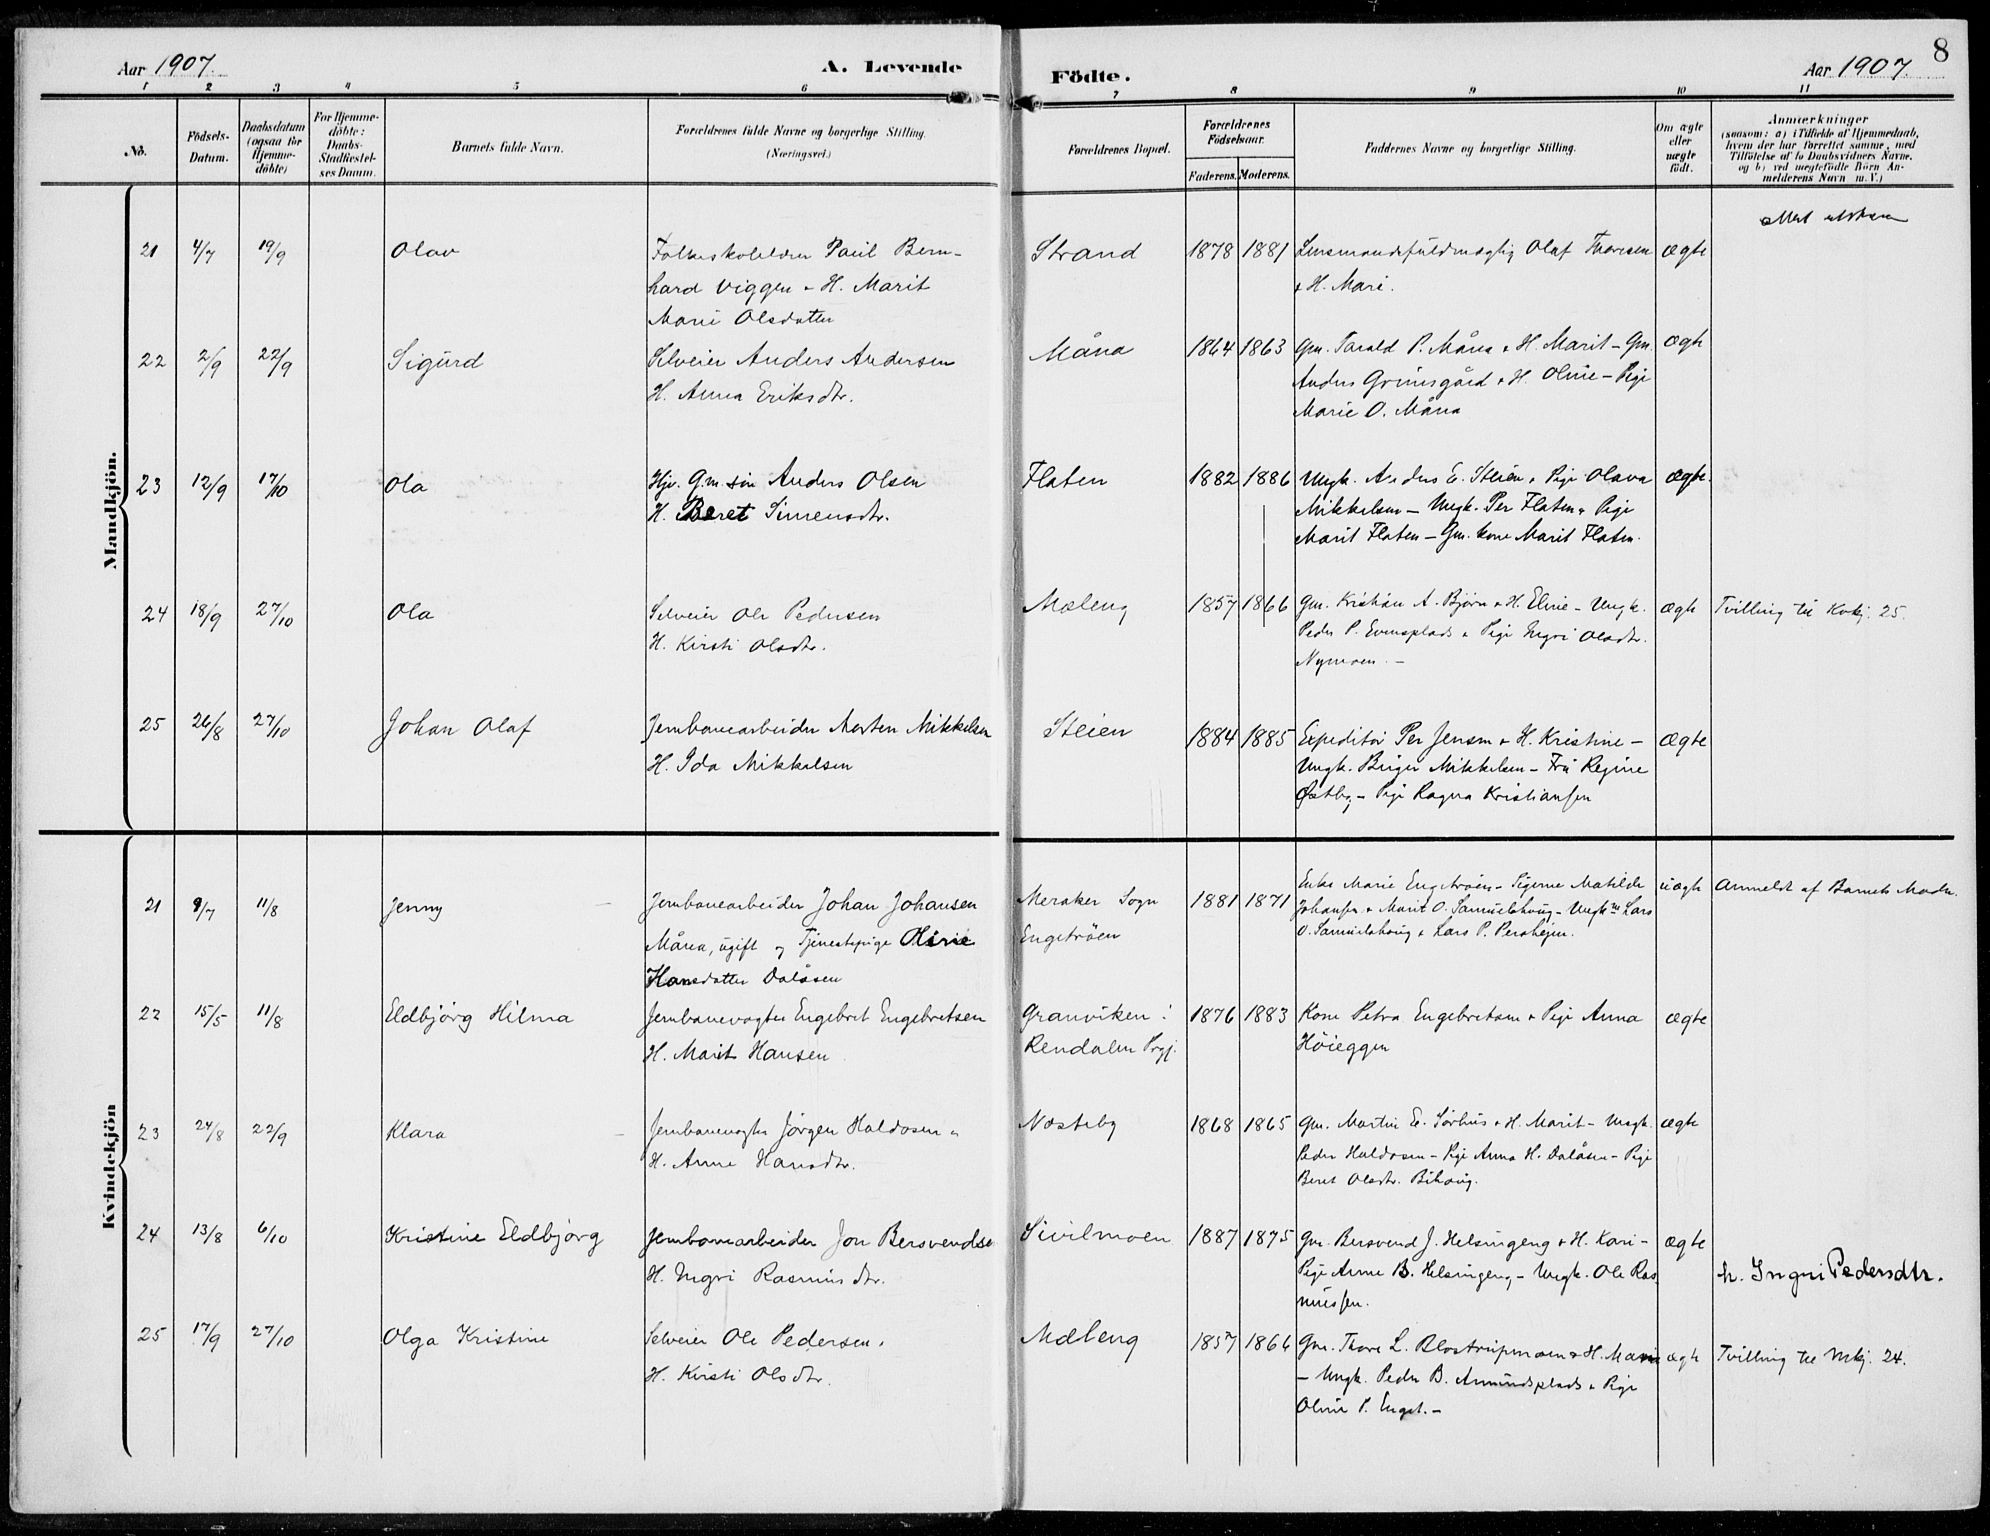 Aar 1907.
A. Levende
Födte.
Aar 1907.
8
1 2 3 4 5 6 7 8 9 10 11
No.
Födsels-
Datum.
Daabsdatum
(ogsaa for
Hjemme-
döbte)
For Hjemme-
döbte:
Daabs-
Stadfæstel-
ses Datum.
Barnets fulde Navn.
Forældrenes fulde Navne og borgerlige Stilling.
(Næringsvei.)
Forældrenes Bopæl.
Forældrenes
Födselsaar.
Faderens. Moderens.
Faddernes Navne og borgerlige Stilling.
Om ægte
eller
uægte
födt.
Anmærkninger
(saasom: a) i Tilfælde af Hjemmedaab,
hvem der har forrettet samme, med
Tilföielse af to Daabsvidners Navne.
og b) ved uægtefödte Börn An-
melderens Navn m. V.)
Mandkjön.
21 4/7 19/9 Olav
Folkeskolelærer Paul Bern-
hard Viggen - H. Marit
Marie Olsdatter
Strand 1878 1881
Lensmandsfuldmægtig Olaf Thoresen
+ H. Mari.
ægte
22 2/9 22/9 Sigurd
Selveier Anders Andersen
H. Anna Eriksdtr.
Måna 1864 1863
Gm. Tarald P. Måna + H. Marit - Gm.
Anders Grimsgård + H. Oline - Pige
Marie O. Måna
ægte
23 12/9 17/10 Ola
Hjv. G.m. søn Anders Olsen
H. Beret Simensdtr.
Flaten 1882 1886
Ungk. Anders E. Steien + Pige Olava
Mikkelsen - Ungk. Per Flaten + Pige
Marit Flaten - Gm. kone Marit Flaten.
ægte.
24 18/9 27/10 Ola
Selveier Ole Pedersen
H. Kirsti Olsdtr.
Mæleng 1857 1866
Gm. Kristian A. Bjørn + H. Eline - Ungk.
Peder P. Evensplads + Pige Ingri Olsdtr.
Nymoen. -
ægte
Tvilling til Kvkj. 25.
25 26/8 27/10 Johan Olaf
Jernbanearbeider Morten Mikkelsen
H. Ida Mikkelsen
Steien 1884 1885
Expeditør Per Jensen + H. Kristine -
Ungk. Birger Mikkelsen - Fru Regine
Østby - Pige Ragna Kristiansen
ægte
Kvindekjön
21 9/7 11/8 Jenny
Jernbanearbeider Johan Johansen
Måna, ugift og Tjenestepige
Hansdatter Dalåsen
Meraker Sogn
Engstrøen
1881 1871
Enke Marie Engstrøen - Pigerne Matilde
Johansen + Marit O. Samuelshaug - Ungkm Lars
O. Samuelshaug + Lars P. Pershejen.
uægte
Anmeldt af Barnets Moder.
22 15/5 11/8 Eldbjörg Hilma
Jernbanevogter Engebret Engebretsen
H. Marit Hansen
Granviken i
Rendalen Prgj.
1876 1883
Kone Petra Engebretsen + Pige Anna
Höieggen
ægte
23 24/8 22/9 Klara
Jernbanevogter Jørgen Haldosen +
H. Anne Hansdtr.
Næsteby 1868 1865
Gm. Martin E. Sørhus + H. Marit - Ungk.
Peder Haldosen - Pige Anna H. Dalåsen - Pige
Beret Olsdtr. Bihaug.
ægte
24 13/8 6/10 Kristine Eldbjørg
Jernbanearbeider Jon Bersvendse
H. Ingri Rasmusdtr.
Sivilmoen 1887 1875
Gm. Bersvend J. Helsingeng + H. Kari -
Pige Anne B. Helsingeng - Ungk. Ole Ras
mussen.
ægte
h. Ingri Pedersdtr.
25 17/9 27/10 Olga Kristine
Selveier Ole Pedersen.
H. Kirsti Olsdtr.
Mæleng 1857 1866
Gm. Thore L. + H. Marie
- Ungk. Peder B. Amundsplads + Pige
Oline P. Enget. -
ægte
Tvilling til Mkj. 24.